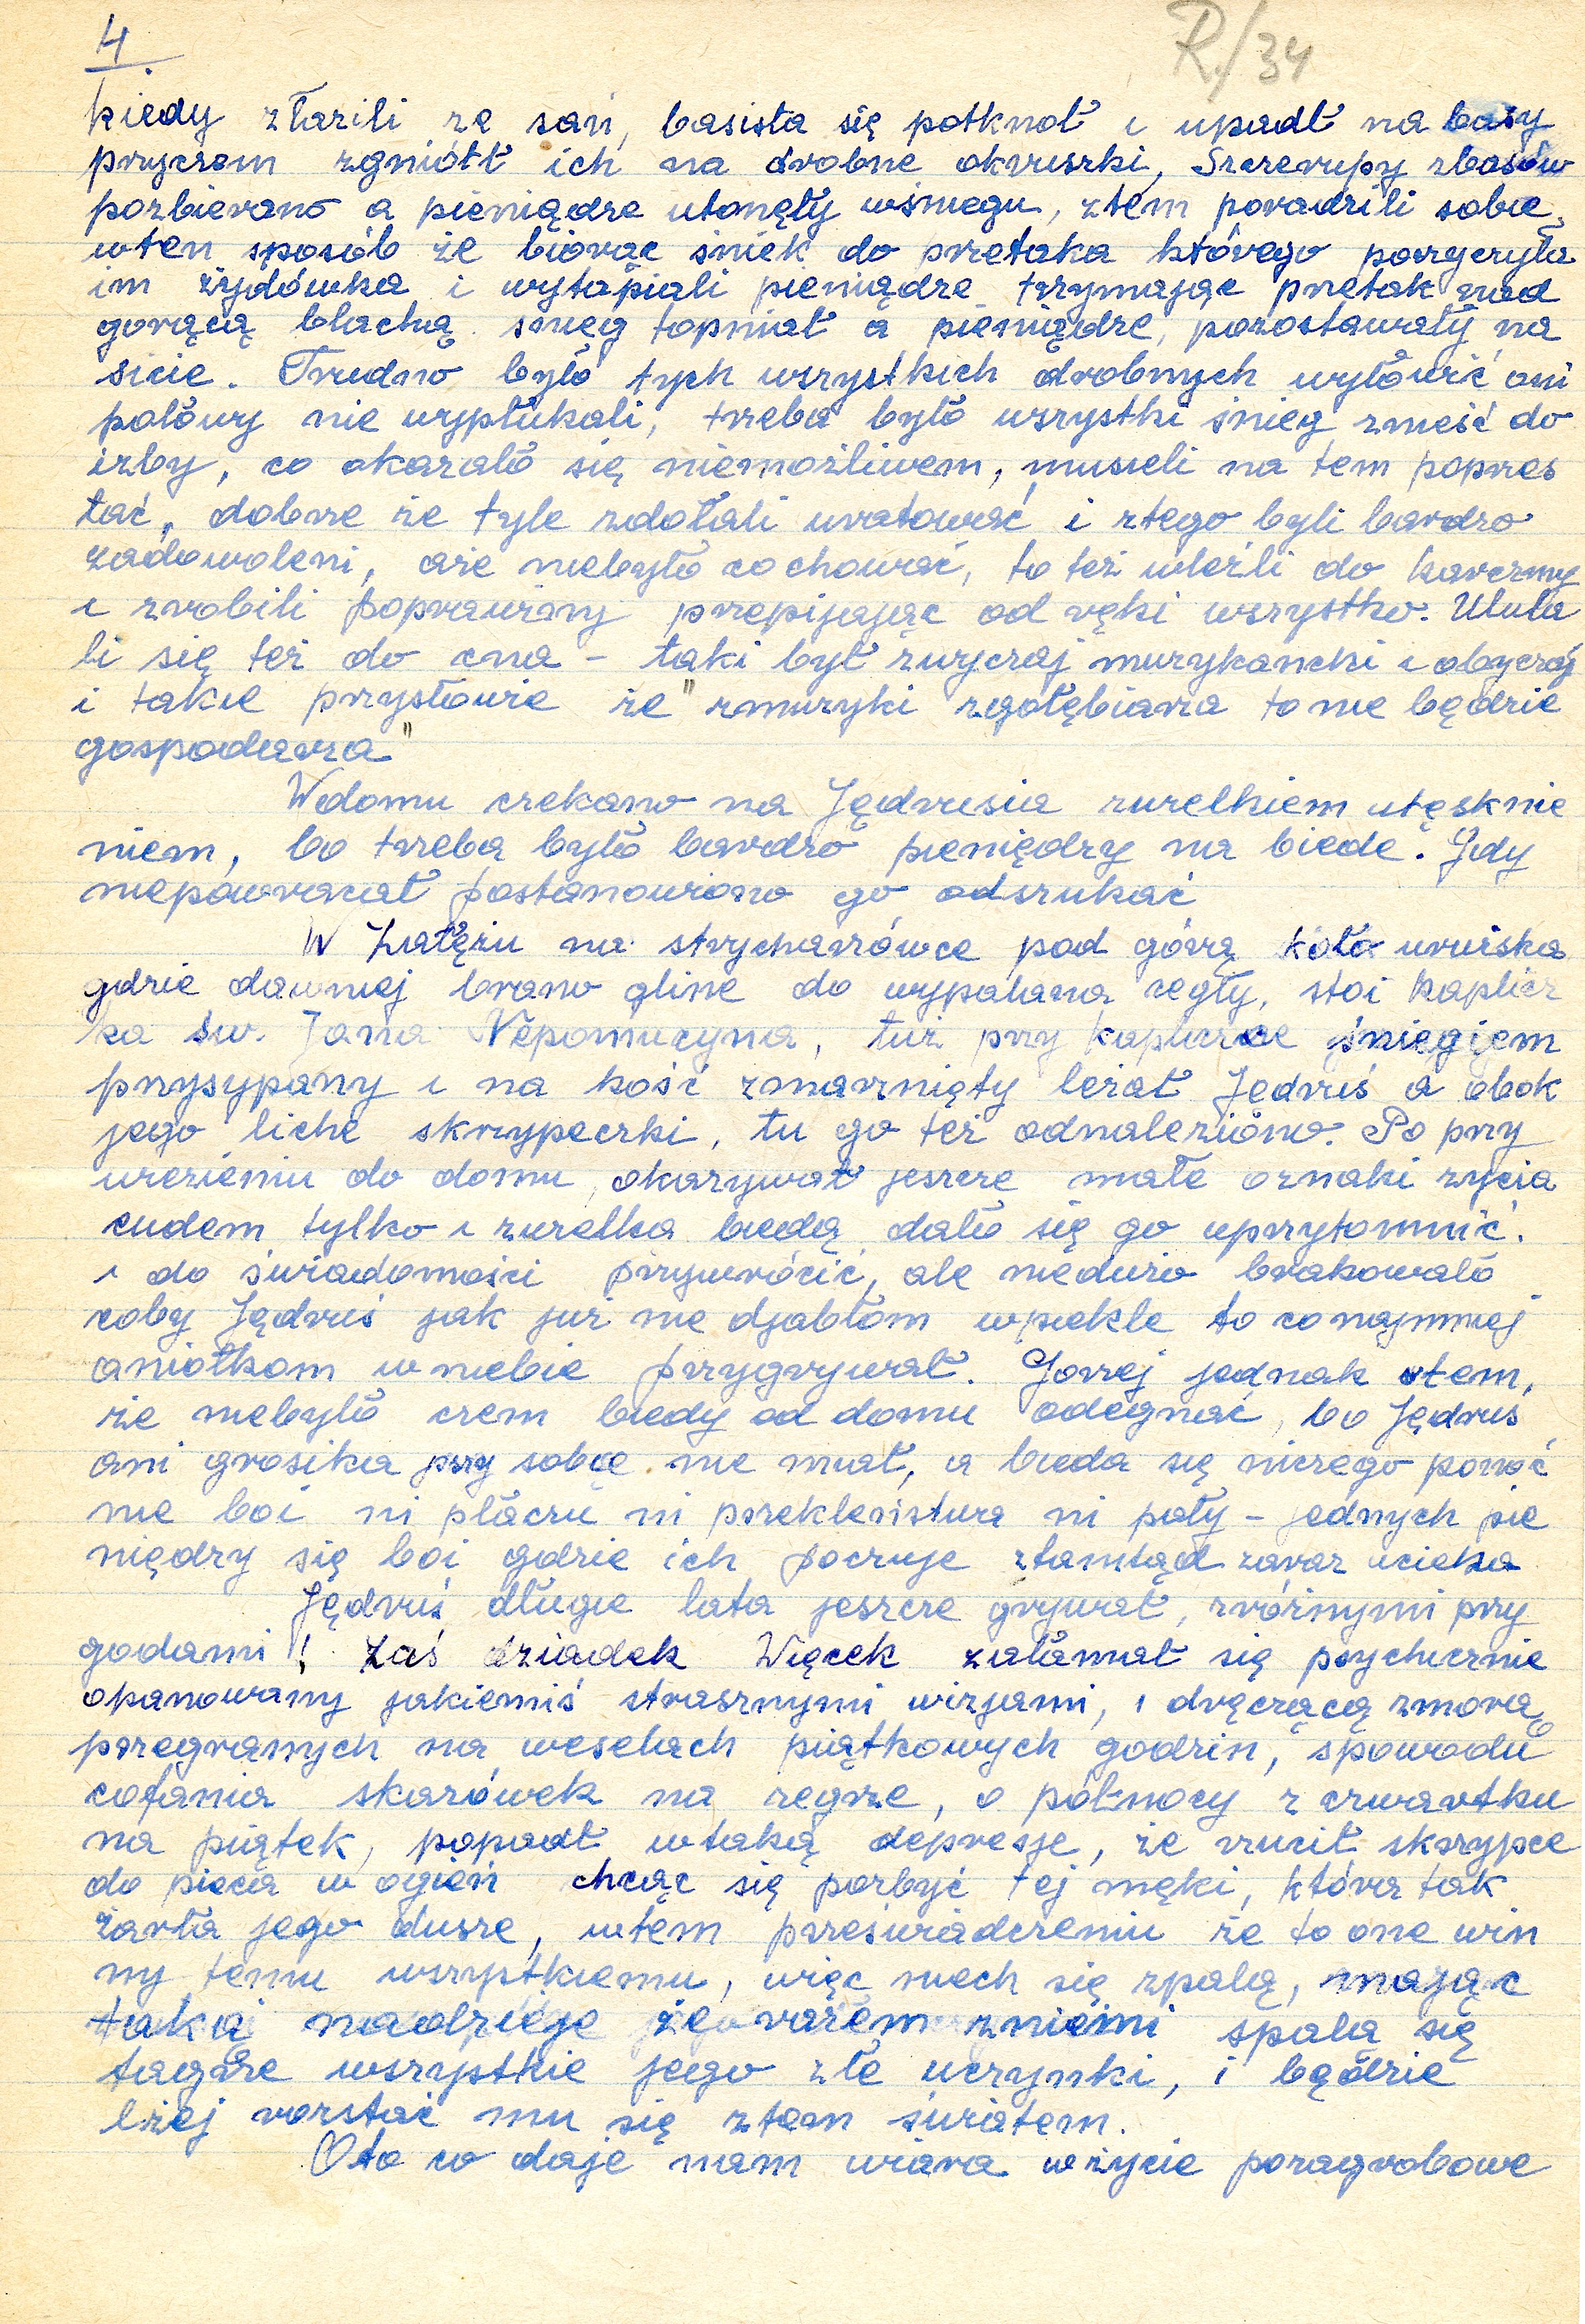 4.
R/34
kiedy złazili ze sań, basista się potknoł i upadł na basy
przyczem zgniótł ich na drobne okruszki, Szczerupy zbasów
pozbierano a pieniądze utonęły wśniegu, ztem poradzili sobie
wten sposób że biorąc śniek do przetaka którego pożyczyła
im żydówka i wytapiali pieniądze trzymając przetak nad
gorącą blachą śnieg topniał a pieniądze, pozostawały na
sicie. Trudno było tych wszystkich drobnych wyłowić ani
połowy nie wypłukali, trzeba było wszystki śnieg znieść do
izby, co okazało się niemożliwem, musieli na tem poprzes
tać, dobrze że tyle zdołali uratować i ztego byli bardzo
zadowoleni, aże niebyło co chować, to też wleźli do karczmy
i zrobili poprawiny przepijając od ręki wszystko. Ulula
li się też do cna – taki był zwyczaj muzykancki i obyczaj
i takie przysłowie że "zmuzyki zgołębiarza to nie będzie
gospodarza"
Wdomu czekano na Jędrusia zwielkiem utęsknie
niem, bo trzeba było bardzo pieniędzy na biede. Gdy
niepowracał postanowiono go odszukać
W Zwłężu na strycharzówce pod górą koło urwiska
gdzie dawniej brano gline do wypalana cegły, stoi kaplicz
ka św. Jana Nepomucyna, tuż przy kapliczce śniegiem
przysypany i na kość zmarznięty leżał Jędruś a obok
jego liche skrzypeczki, tu go też odnaleziono. Po przy
wiezieniu do domu, okazywał jeszcze małe oznaki życia
cudem tylko i zwielka biedą dało się go uprzytomnić.
i do świadomości przywrócić, ale niedużo brakowało
coby Jędruś jak już nie djabłom wpiekle to conajmniej
aniołkom w niebie przygrywał. Gorzej jednak ztem,
że niebyło czem biedy od domu odegnać, bo Jędruś
ani grosika przy sobie nie miał, a bieda się niczego ponoć
nie boi ni płaczu ni przeklenistwa ni pały – jednych pie
niędzy się boi gdzie ich poczuje ztamtąd zaraz ucieka
Jędruś długie lata jeszcze grywał, zróżnymi przy
godami! Zaś dziadek Więcek załamał się psychicznie
opanowany jakiemiś strasznymi wizjami, i dręczącą zmorą
przegranych na weselach piątkowych godzin, spowodu
cofania skazówek na zegrze, o północy z czwartku
na piątek, popadł wtaką depresje, że rzucił skrzypce
do pieca w ogień chcąc się pozbyć tej męki, która tak
żarła jego dusze, wtem przeświadczeniu że to one win
ny temu wszystkiemu, więc niech się zpalą, mając
taką nadzieje że razem zniemi spalą się
także wszystkie jego złe uczynki, i będzie
lżej rozstać mu się ztem światem.
Oto co daje nam wiara wżycie pozagrobowe